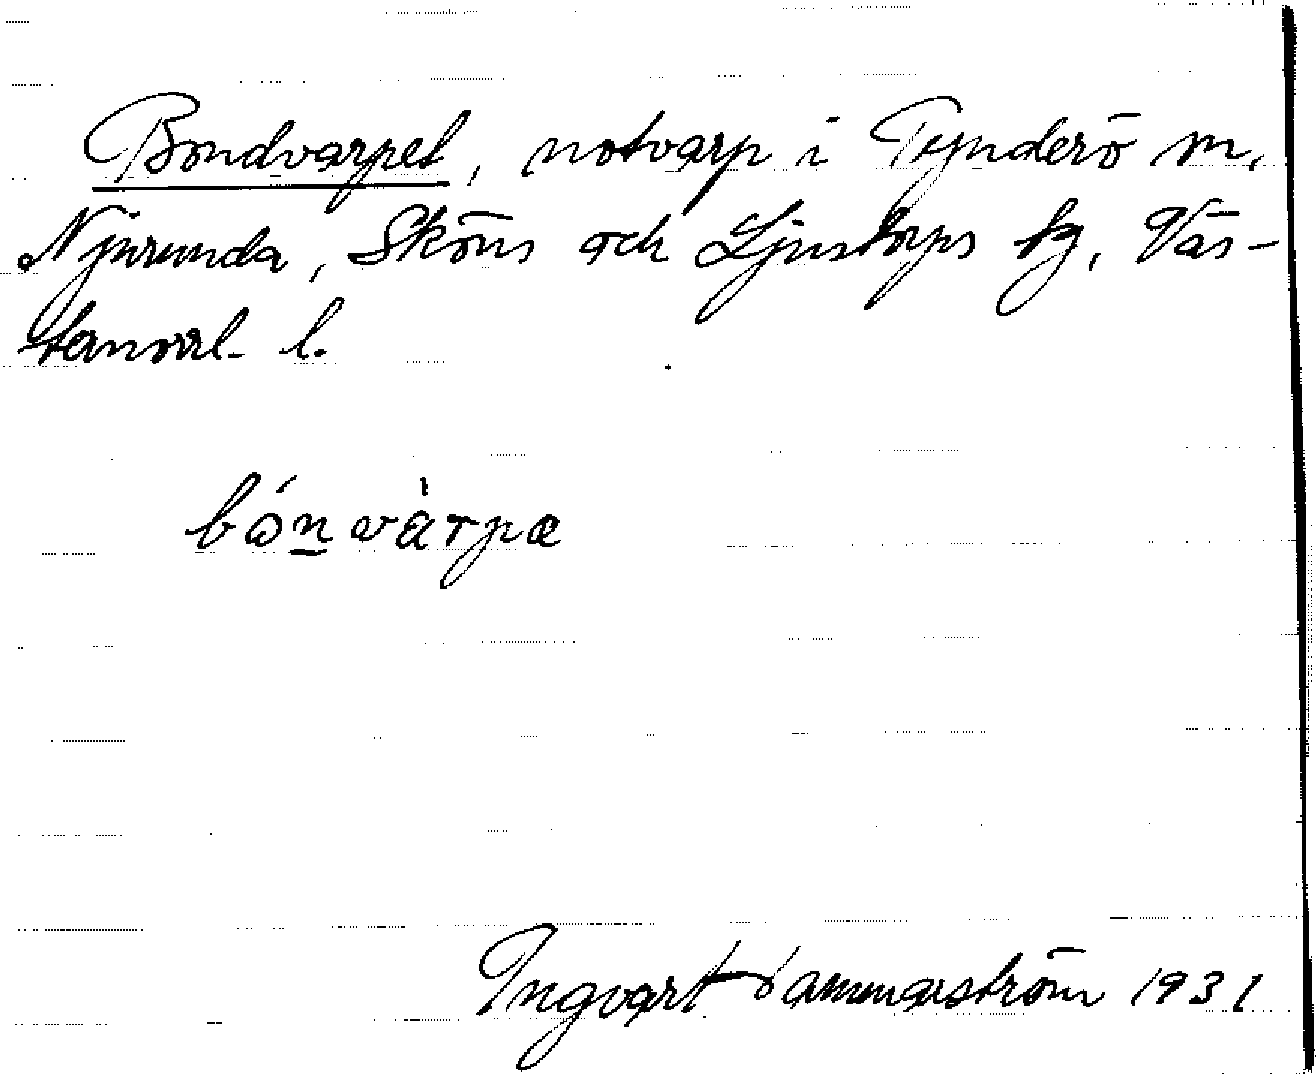 Bondvarpet, notvarp i Tynderö sn,
Njurunda, Sköns och Ljustorps tg, Väs-
ternorrl. l.
bónvàrpæ
Ingvart Hammarström 1931